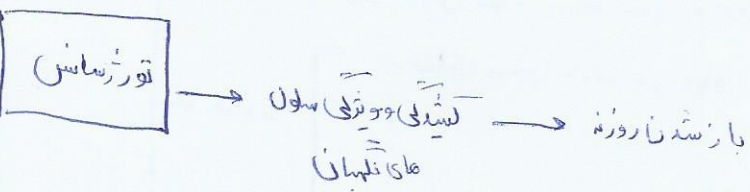 تورژسانس
کشیدگی و ویژگی سلول
های نگهبان
باز شدن روزنه